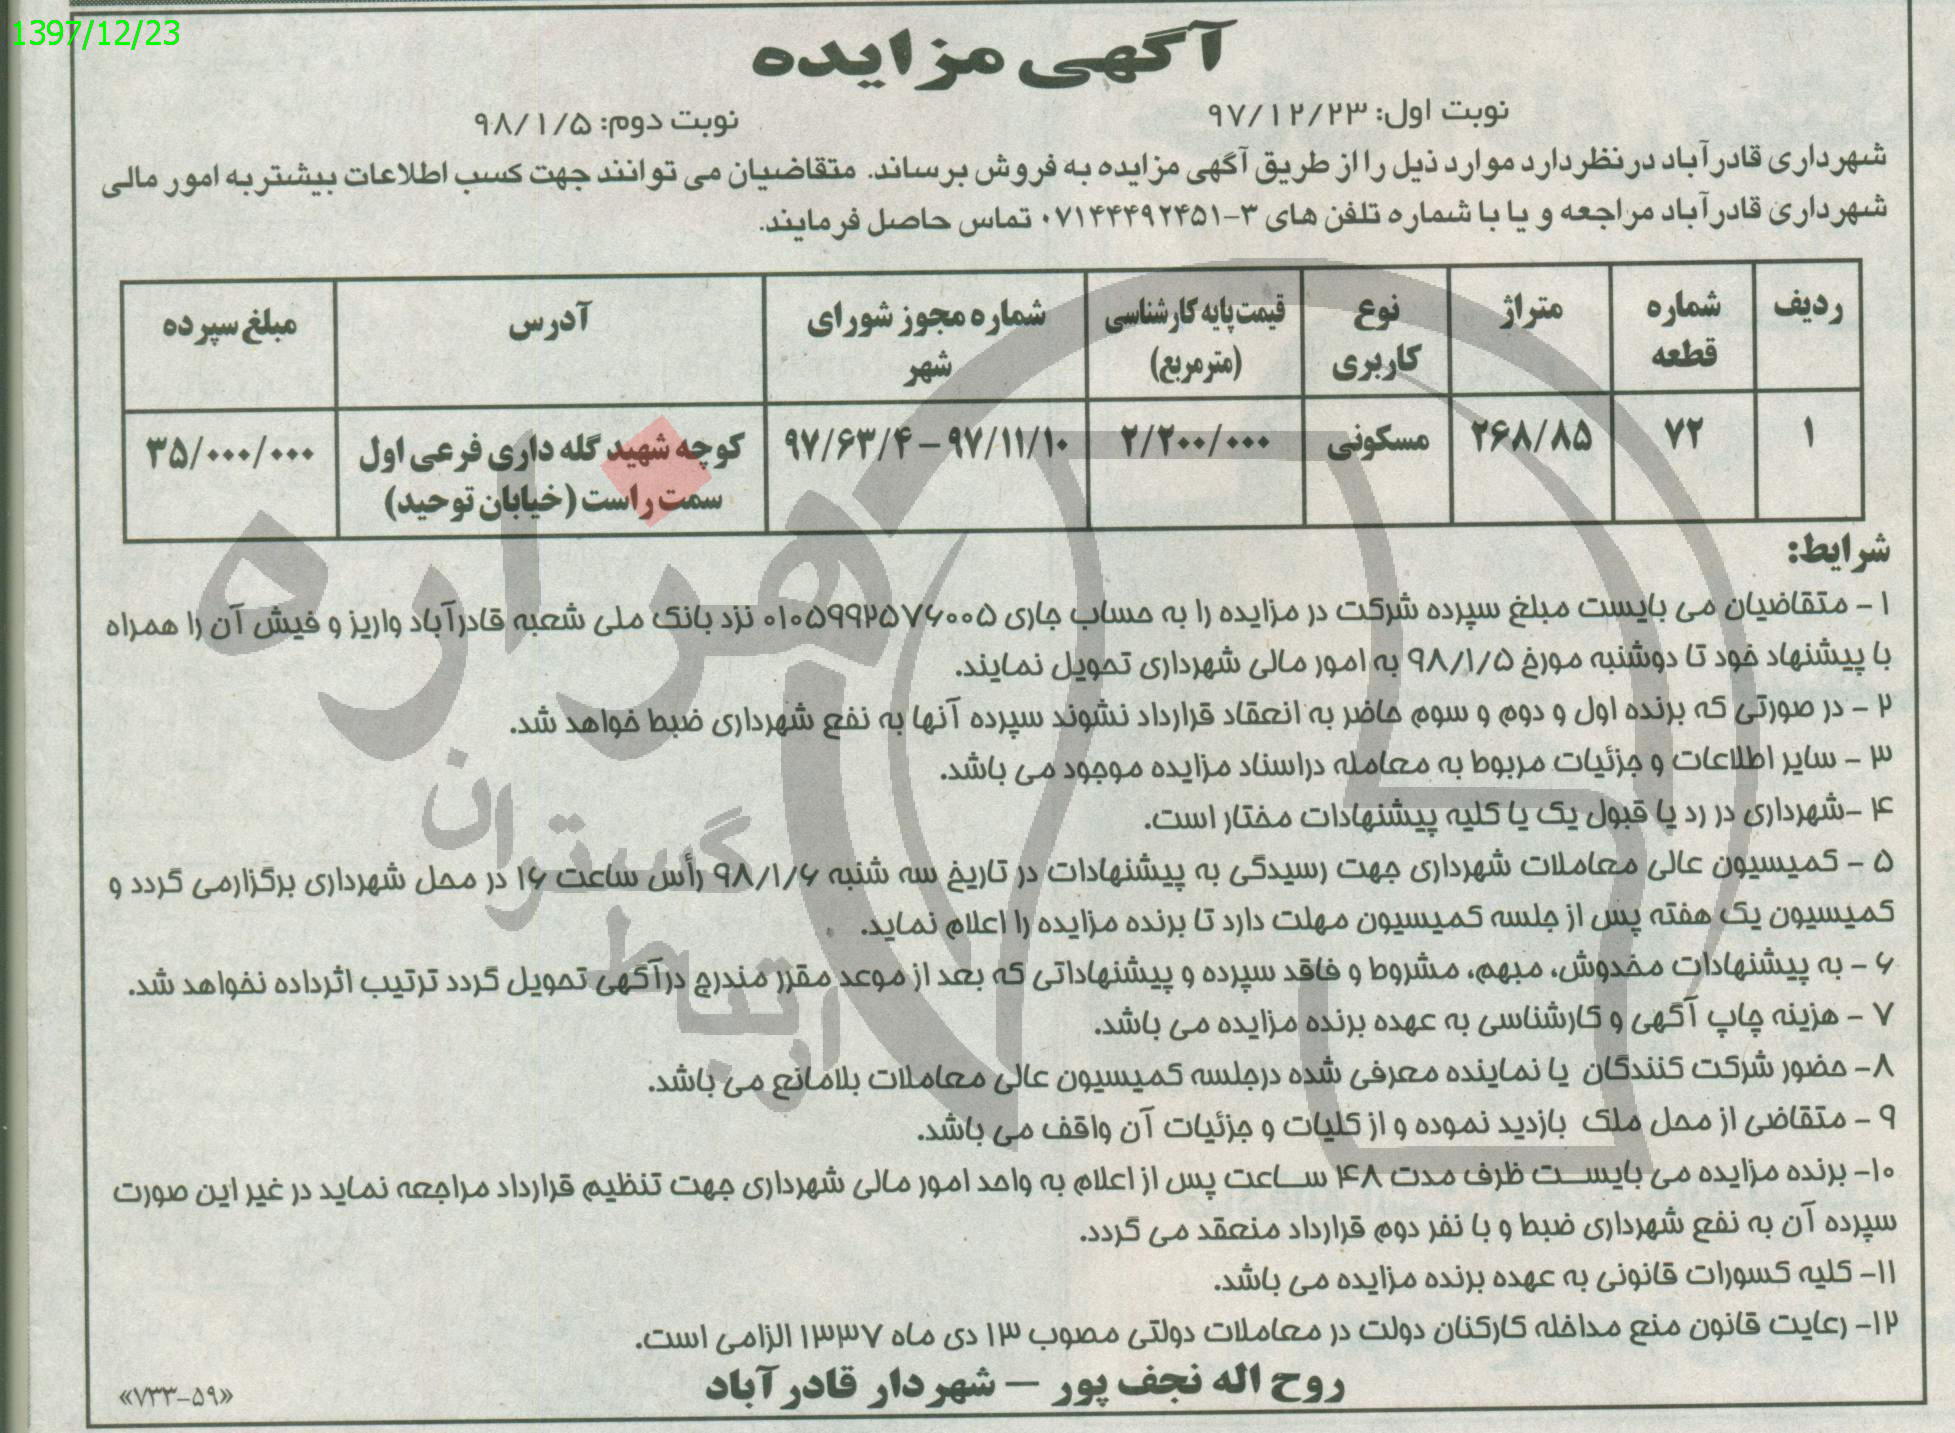 1397/12/23
آگهی مزایده
نوبت اول: ۹۷/۱۲/۲۳
نوبت دوم: ۹۸/۱/۵
شهرداری قادرآباد درنظردارد موارد ذیل را از طریق آگهی مزایده به فروش برساند. متقاضیان می توانند جهت کسب اطلاعات بیشتر به امور مالی
شهرداری قادرآباد مراجعه و یا با شماره تلفن های ۳-۰۷۱۴۴۴۹۲۴۵۱ تماس حاصل فرمایند.
ردیف شماره قطعه متراژ نوع کاربری قیمت پایه کارشناسی (مترمربع) شماره مجوز شورای شهر آدرس مبلغ سپرده
۱ ۷۲ ۲۶۸/۸۵ مسکونی ۲/۲۰۰/۰۰۰ ۹۷/۶۳/۴ – ۹۷/۱۱/۱۰ کوچه شهید گله داری فرعی اول سمت راست (خیابان توحید) ۳۵/۰۰۰/۰۰۰
شرایط:
۱ - متقاضیان می بایست مبلغ سپرده شرکت در مزایده را به حساب جاری ۰۱۰۵۹۹۲۵۷۶۰۰۵ نزد بانک ملی شعبه قادرآباد واریز و فیش آن را همراه
با پیشنهاد خود تا دوشنبه مورخ ۹۸/۱/۵ به امور مالی شهرداری تحویل نمایند.
۲ - در صورتی که برنده اول و دوم و سوم حاضر به انعقاد قرارداد نشوند سپرده آنها به نفع شهرداری ضبط خواهد شد.
۳ - سایر اطلاعات و جزئیات مربوط به معامله دراسناد مزایده موجود می باشد.
۴ -شهرداری در رد یا قبول یک یا کلیه پیشنهادات مختار است.
۵ - کمیسیون عالی معاملات شهرداری جهت رسیدگی به پیشنهادات در تاریخ سه شنبه ۹۸/۱/۶ رأس ساعت ۱۶ در محل شهرداری برگزارمی گردد و
کمیسیون یک هفته پس از جلسه کمیسیون مهلت دارد تا برنده مزایده را اعلام نماید.
۶ - به پیشنهادات مخدوش، مبهم، مشروط و فاقد سپرده و پیشنهاداتی که بعد از موعد مقرر مندرج درآگهی تحویل گردد ترتیب اثرداده نخواهد شد.
۷ - هزینه چاپ آگهی و کارشناسی به عهده برنده مزایده می باشد.
۸- حضور شرکت کنندگان یا نماینده معرفی شده درجلسه کمیسیون عالی معاملات بلامانع می باشد.
۹ - متقاضی از محل ملک بازدید نموده و از کلیات و جزئیات آن واقف می باشد.
۱۰- برنده مزایده می بایست ظرف مدت ۴۸ ساعت پس از اعلام به واحد امور مالی شهرداری جهت تنظیم قرارداد مراجعه نماید در غیر این صورت
سپرده آن به نفع شهرداری ضبط و با نفر دوم قرارداد منعقد می گردد.
۱۱- کلیه کسورات قانونی به عهده برنده مزایده می باشد.
۱۲- رعایت قانون منع مداخله کارکنان دولت در معاملات دولتی مصوب ۱۳ دی ماه ۱۳۳۷ الزامی است.
روح اله نجف پور – شهردار قادرآباد
«۷۳۳-۵۹»
هزاره
گستران
ارتباط